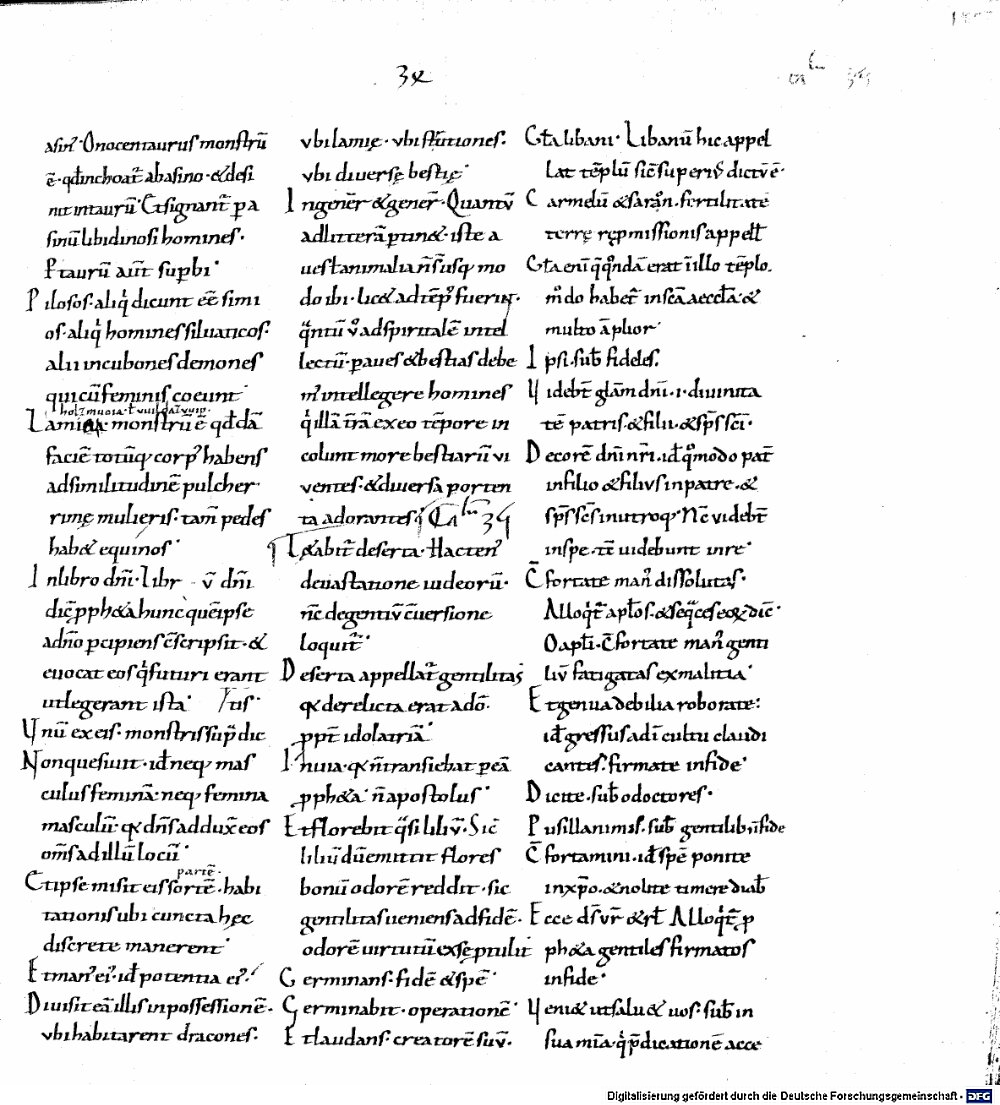 34
asin᷒. Onocentaurus monstrū
ē. qđ inchoat᷑ ab asino. & desi
nit in taurū. Et signant᷑ p a
sinū libidinosi homines.
P taurū aut̄ supbi.
Pilosos. aliq̇ dicunt eē simi
os. aliq̇ homines siluaticos.
alii incubones demones
qui cū feminis coeunt
Lamia. monstrū ē qđ dā
faciē totūq; corp᷒ habens
ad similitudinē pulcher
rimę mulieris. tam̄ pedes
hab& equinos.
In libro dn̄i. libr v̄ dn̄i
dic̄ pph&a hunc quē ipse
a dn̄o pcipiens cscripsit. &
euocat eos q̇ futuri erant
ut legerant ista.
Unū ex eis. monstris sup̄dic
tis.
Non quesiuit. id neq; mas
culus feminā. neq; femina
masculū. qx dn̄s adduxᷓ eos
om̄s ad illū locū.
partē.
Et ipse misit eis sortē. habi
tationis ubi cuncta hęc
discrete manerent.
Et man᷒ ei᷒. id potentia ei᷒.
Diuisit eā illis in possessionē.
ubi habitarent dracones.
ubi lamię. ubi strutiones.
ubi diuersę bestię.
In gener̄ & gener̄. Quantū
ad litterā ptin&. iste a
uest animalia n̄ s̄t usq; mo
do ibi. lic& ad tēp᷒ fuerint.
q̄ntū v̊ ad spiritalē intel
lectū. p aues & bestias debe
m᷒ intellegere homines
q̇ illā tr̄ā ex eo tēpore in
colunt more bestiarū vi
ventes. & diuersa porten
ta adorantes. Ca 35
L&abit᷑ deserta. Hacten᷒
deuastatione iudeorū.
n̄c de gentiū cūersione
loquit᷑.
Deserta appellat᷑ gentilitas
qx derelicta erat a dō.
ppt̄ idolatriā.
Inuia. qx n̄ transiebat p eā
pph&a. n̄ apostolus.
Et florebit q̄si liliū. Sic̄
liliū dū emittit flores
bonū odorē reddit. sic
gentilitas ueniens ad fidē.
odorē uirtutū ex se ptulit
Germinans. fidē & spē.
Germinabit. operationē.
Et laudans. creatorē suū.
Gła libani. Libanū hic appel
lat tēplū sic̄ superi᷒ dictū ē.
Carmelū & saron. fertilitatē
terrę repmissionis appell̄t
Gła enī q̄ q̊ndā erat ī illo tēplo.
m̊do habet᷑ in scā aeccła. &
multo āplior.
Ipsi. sub̄ fideles.
Videbt̄ głam dn̄i. i. diuinita
tē patris. & filii. & sp̄s sc̄i.
Decorē dn̄i nr̄i. id q̊modo pat̄
in filio & filius in patre. &
sp̄s sc̄s in utroq;. Nc̄ videbt̄
in spe. tc̄ uidebunt in re.
C̄fortate man᷒ dissolutas.
Alloqt̄᷑ apłos. & seq̄ces eox. dic̄.
O apłi. C̄fortate man᷒ genti
liū fatigatas ex malitia.
Et genua debilia roborate:
id gressus ad ī cultu claudi
cantes. firmate in fide.
Dicite. sub̄ o doctores.
Pusillanimis. sub̄ gentilib; in fide
C̄fortamini. id spē ponite
in xp̄o. & nolite timere diab̄
Ecce ds̄ vr̄ & rł. Alloqt̄᷑ p
ph&a gentiles firmatos
in fide.
Veni& ut salu& uos. sub̄ in
sua mīa. q̇ p̄dicationē acce
Digitalisierung gefördert durch die Deutsche Forschungsgemeinschaft - DFG